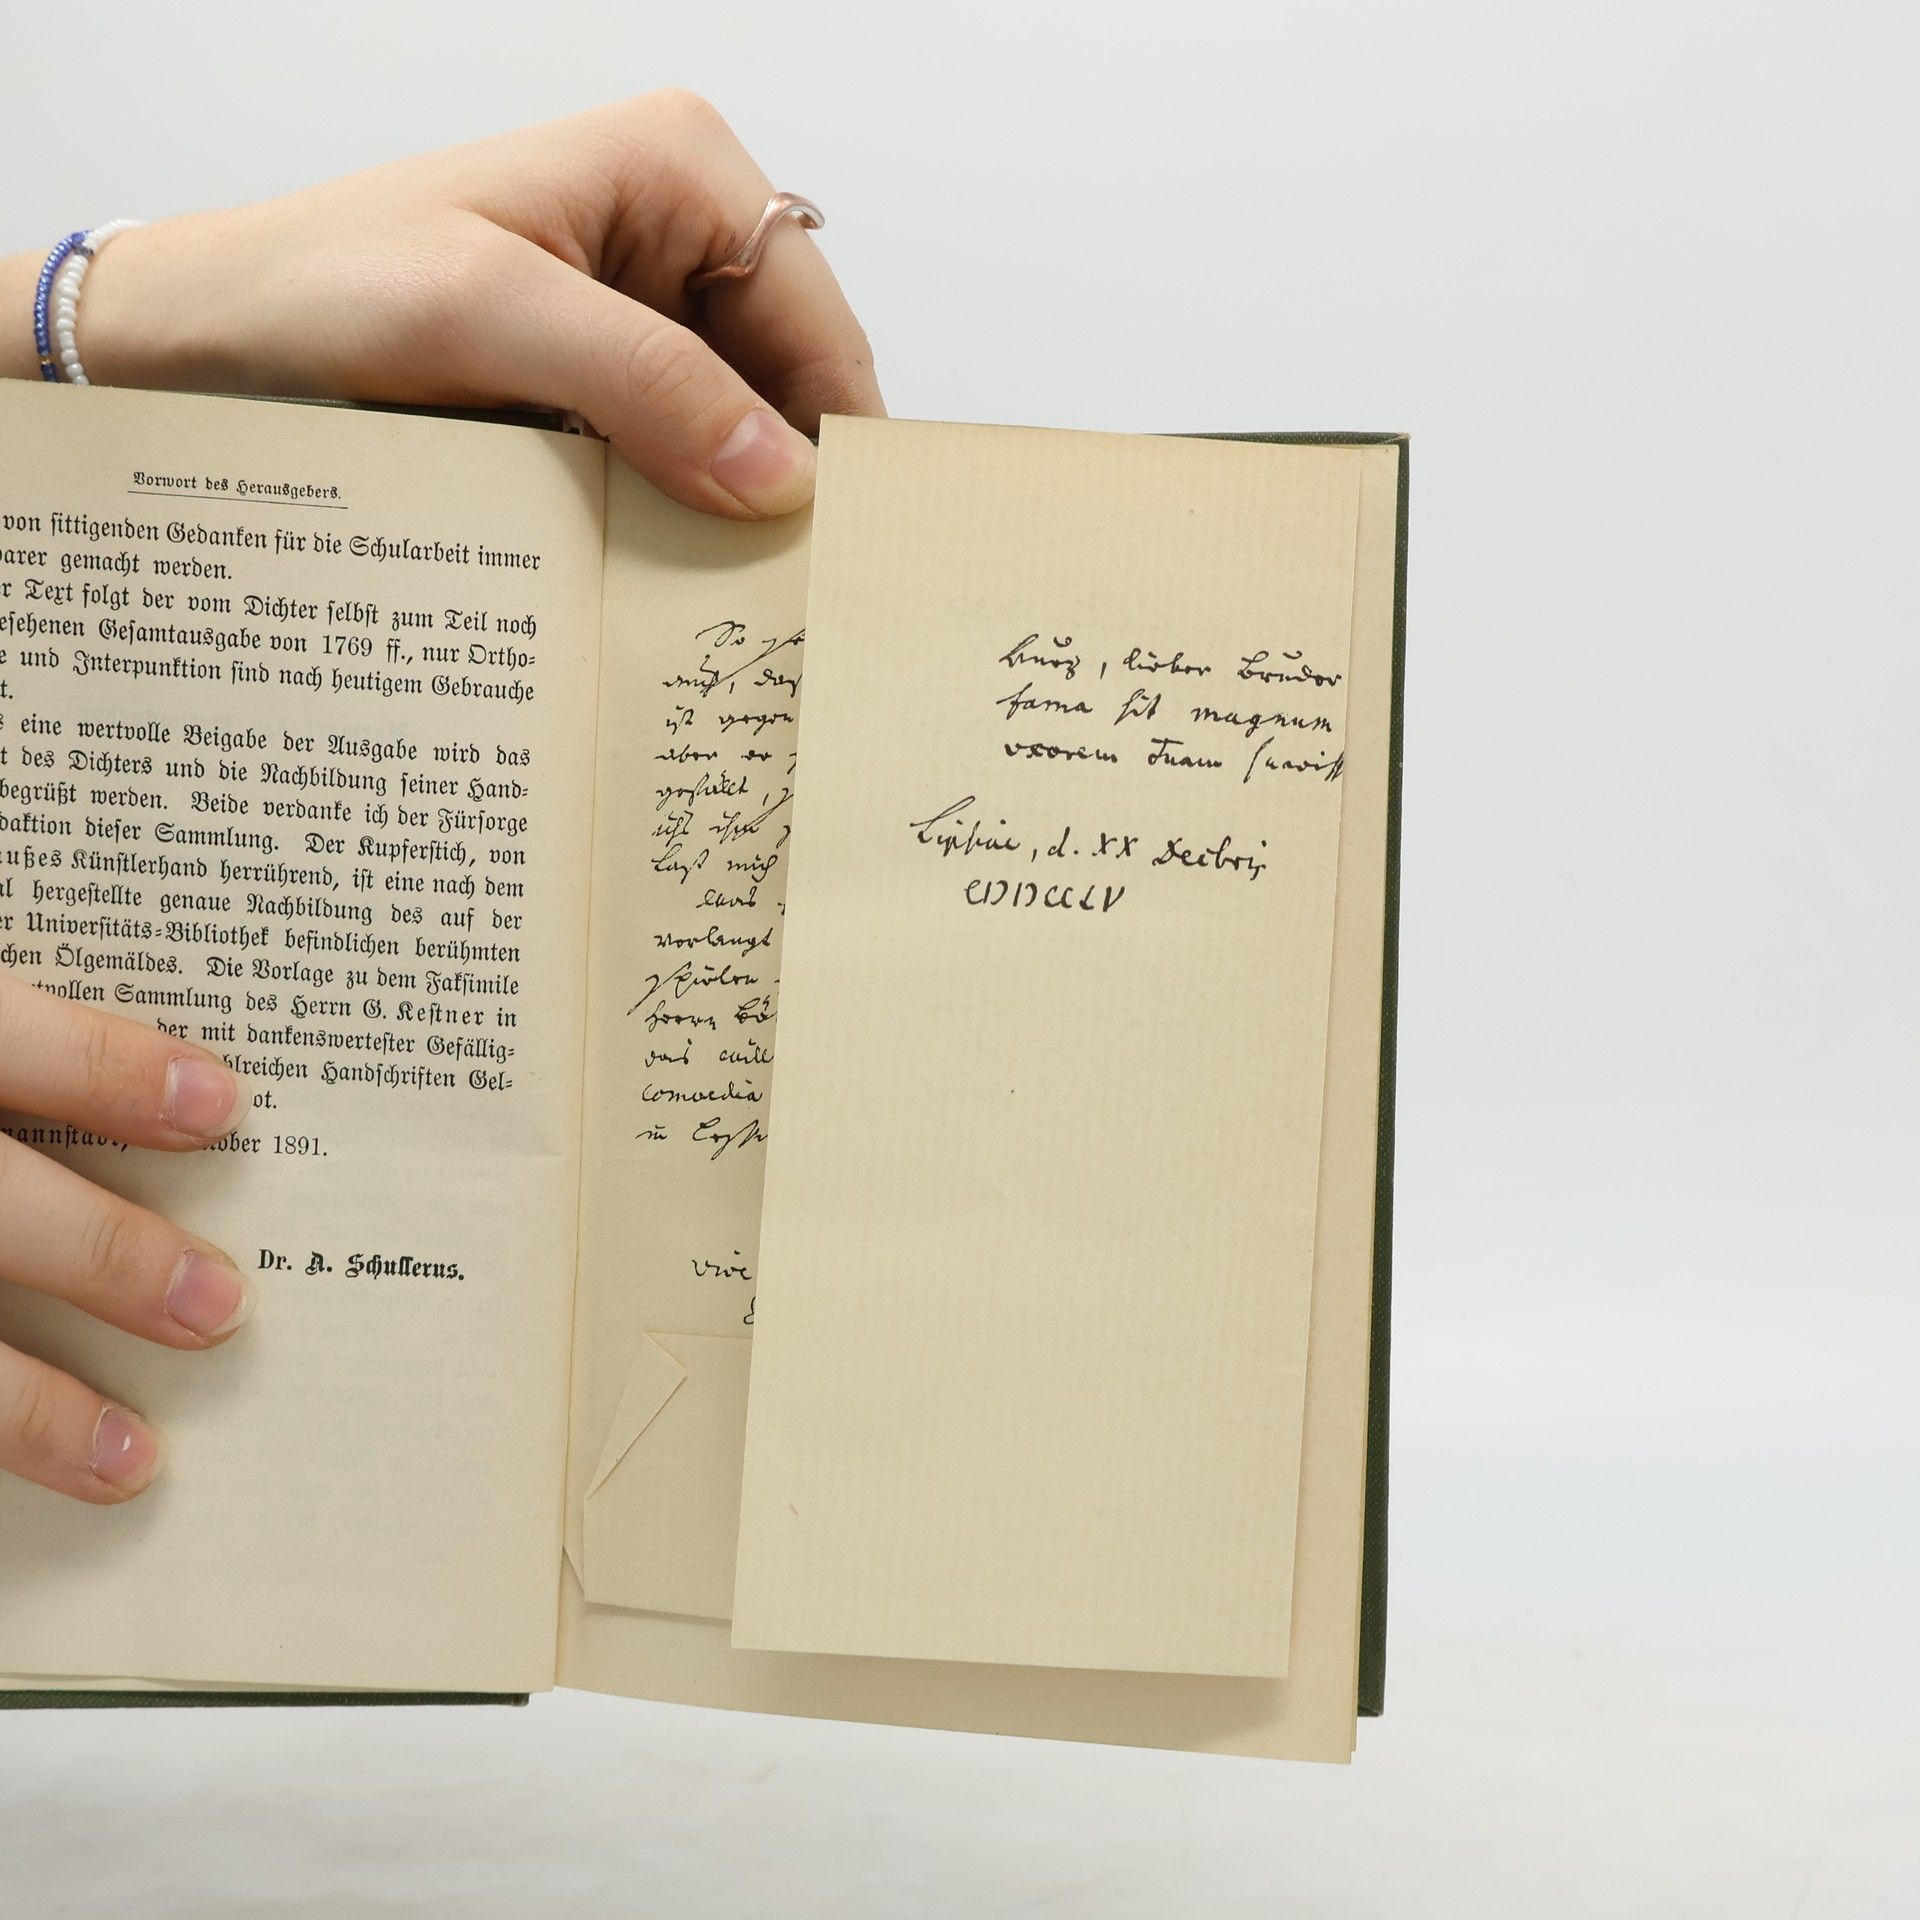 Vorwort des Herausgebers.
von sittigenden Gedanken für die Schularbeit immer
barer gemacht werden.
er Text folgt der vom Dichter selbst zum Teil noch
esehenen Gesamtausgabe von 1769 ff., nur Ortho-
e und Interpunktion sind nach heutigem Gebrauche
t.
s eine wertvolle Beigabe der Ausgabe wird das
t des Dichters und die Nachbildung seiner Hand-
begrüßt werden. Beide verdanke ich der Fürsorge
daktion dieser Sammlung. Der Kupferstich, von
außes Künstlerhand herrührend, ist eine nach dem
al hergestellte genaue Nachbildung des auf der
er Universitäts-Bibliothek befindlichen berühmten
schen Ölgemäldes. Die Vorlage zu dem Faksimile
rtvollen Sammlung des Herrn G. Kestner in
der mit dankenswertester Gefällig-
hlreichen Handschriften Gel-
ot.
mannstadt, tober 1891.
Dr. A. Schullerus.
So
auch, das
ist gegen
aber er
Laß mich
verlangt
spielen
Herrn Bö
das will
comoedia
in
vive
Kurz, lieber Bruder
fama sit magnum
vxorem Tuam suaviss
Lipsiae, d. XX Decbris
CIƆIƆCCLV